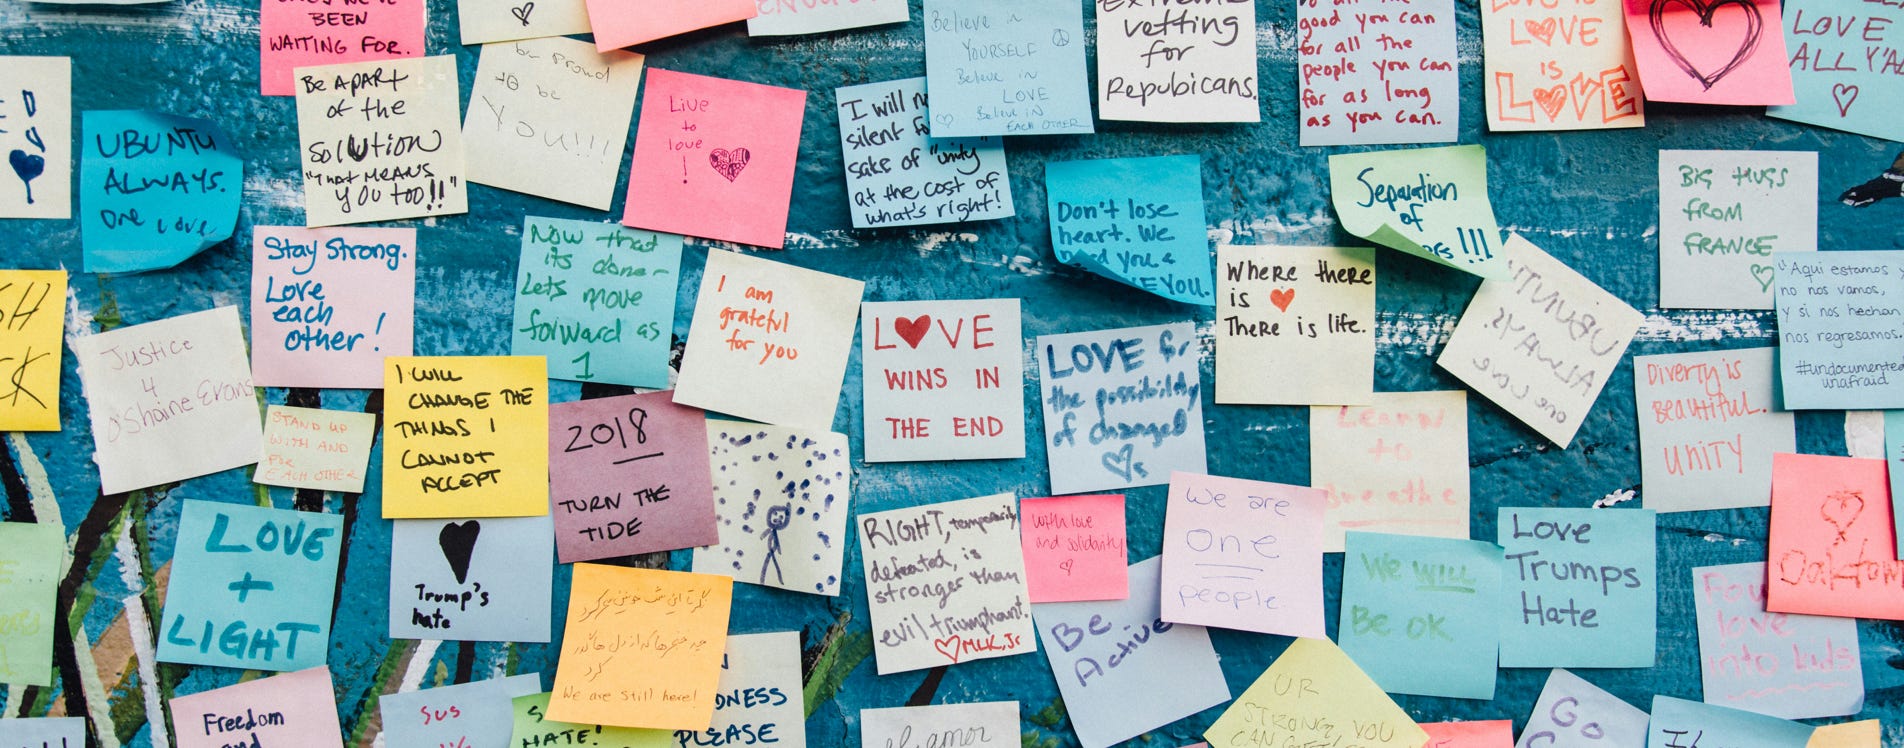 BEEN
WAITING FOR.
Be APArt
of the
Solution
"that MEANS
you too!!"
be proud
to be
You!!!
Live
to
love
!
Believe in
YOURSELF
Believe in
LOVE
Believe in
EACH OTHER
I will
silent
sake of "unity"
at the cost of
what's right!
Extreme
vetting
for
Repubicans.
good you can
for all the
people you can
for as long
as you can.
LOVE IS
LOVE
IS
LOVE
LOVE
ALL Y'ALL
UBUNTU
ALWAYS.
One Love.
Stay Strong.
Love
each
other!
Now that
its done-
Lets move
forward as
1
I am
grateful
for you
LOVE
WINS IN
THE END
Don't lose
heart. We
need you &
YOU.
Separation
of
!!!
Where there
is
There is life.
BIG HUGS
FROM
FRANCE
Aqui estamos
no nos vamos,
y si nos hechan
nos regresamos.
#undocumented
unafraid
UBUNTU
ALWAYS.
One Love
Justice
4
O'Shaine Evans
STAND UP
WITH AND
FOR
EACH OTHER
I WILL
CHANGE THE
THINGS I
CANNOT
ACCEPT
2018
TURN THE
TIDE
LOVE for
the possibility
of changed
Learn
to
Breathe
Diverty is
Beautiful.
UNITY
LOVE
+
LIGHT
Trump's
hate
RIGHT, temporarily
defeated, is
stronger than
evil triumphant.
MLK, Jr
with love
and solidarity
We are
One
people.
Be
Active
We WILL
Be OK
Love
Trumps
Hate
love
into kids
Oaktown
We are still here!
Freedom
and
SUS
HATE!
PLEASE
el amor
UR
STRONG, YOU
Go